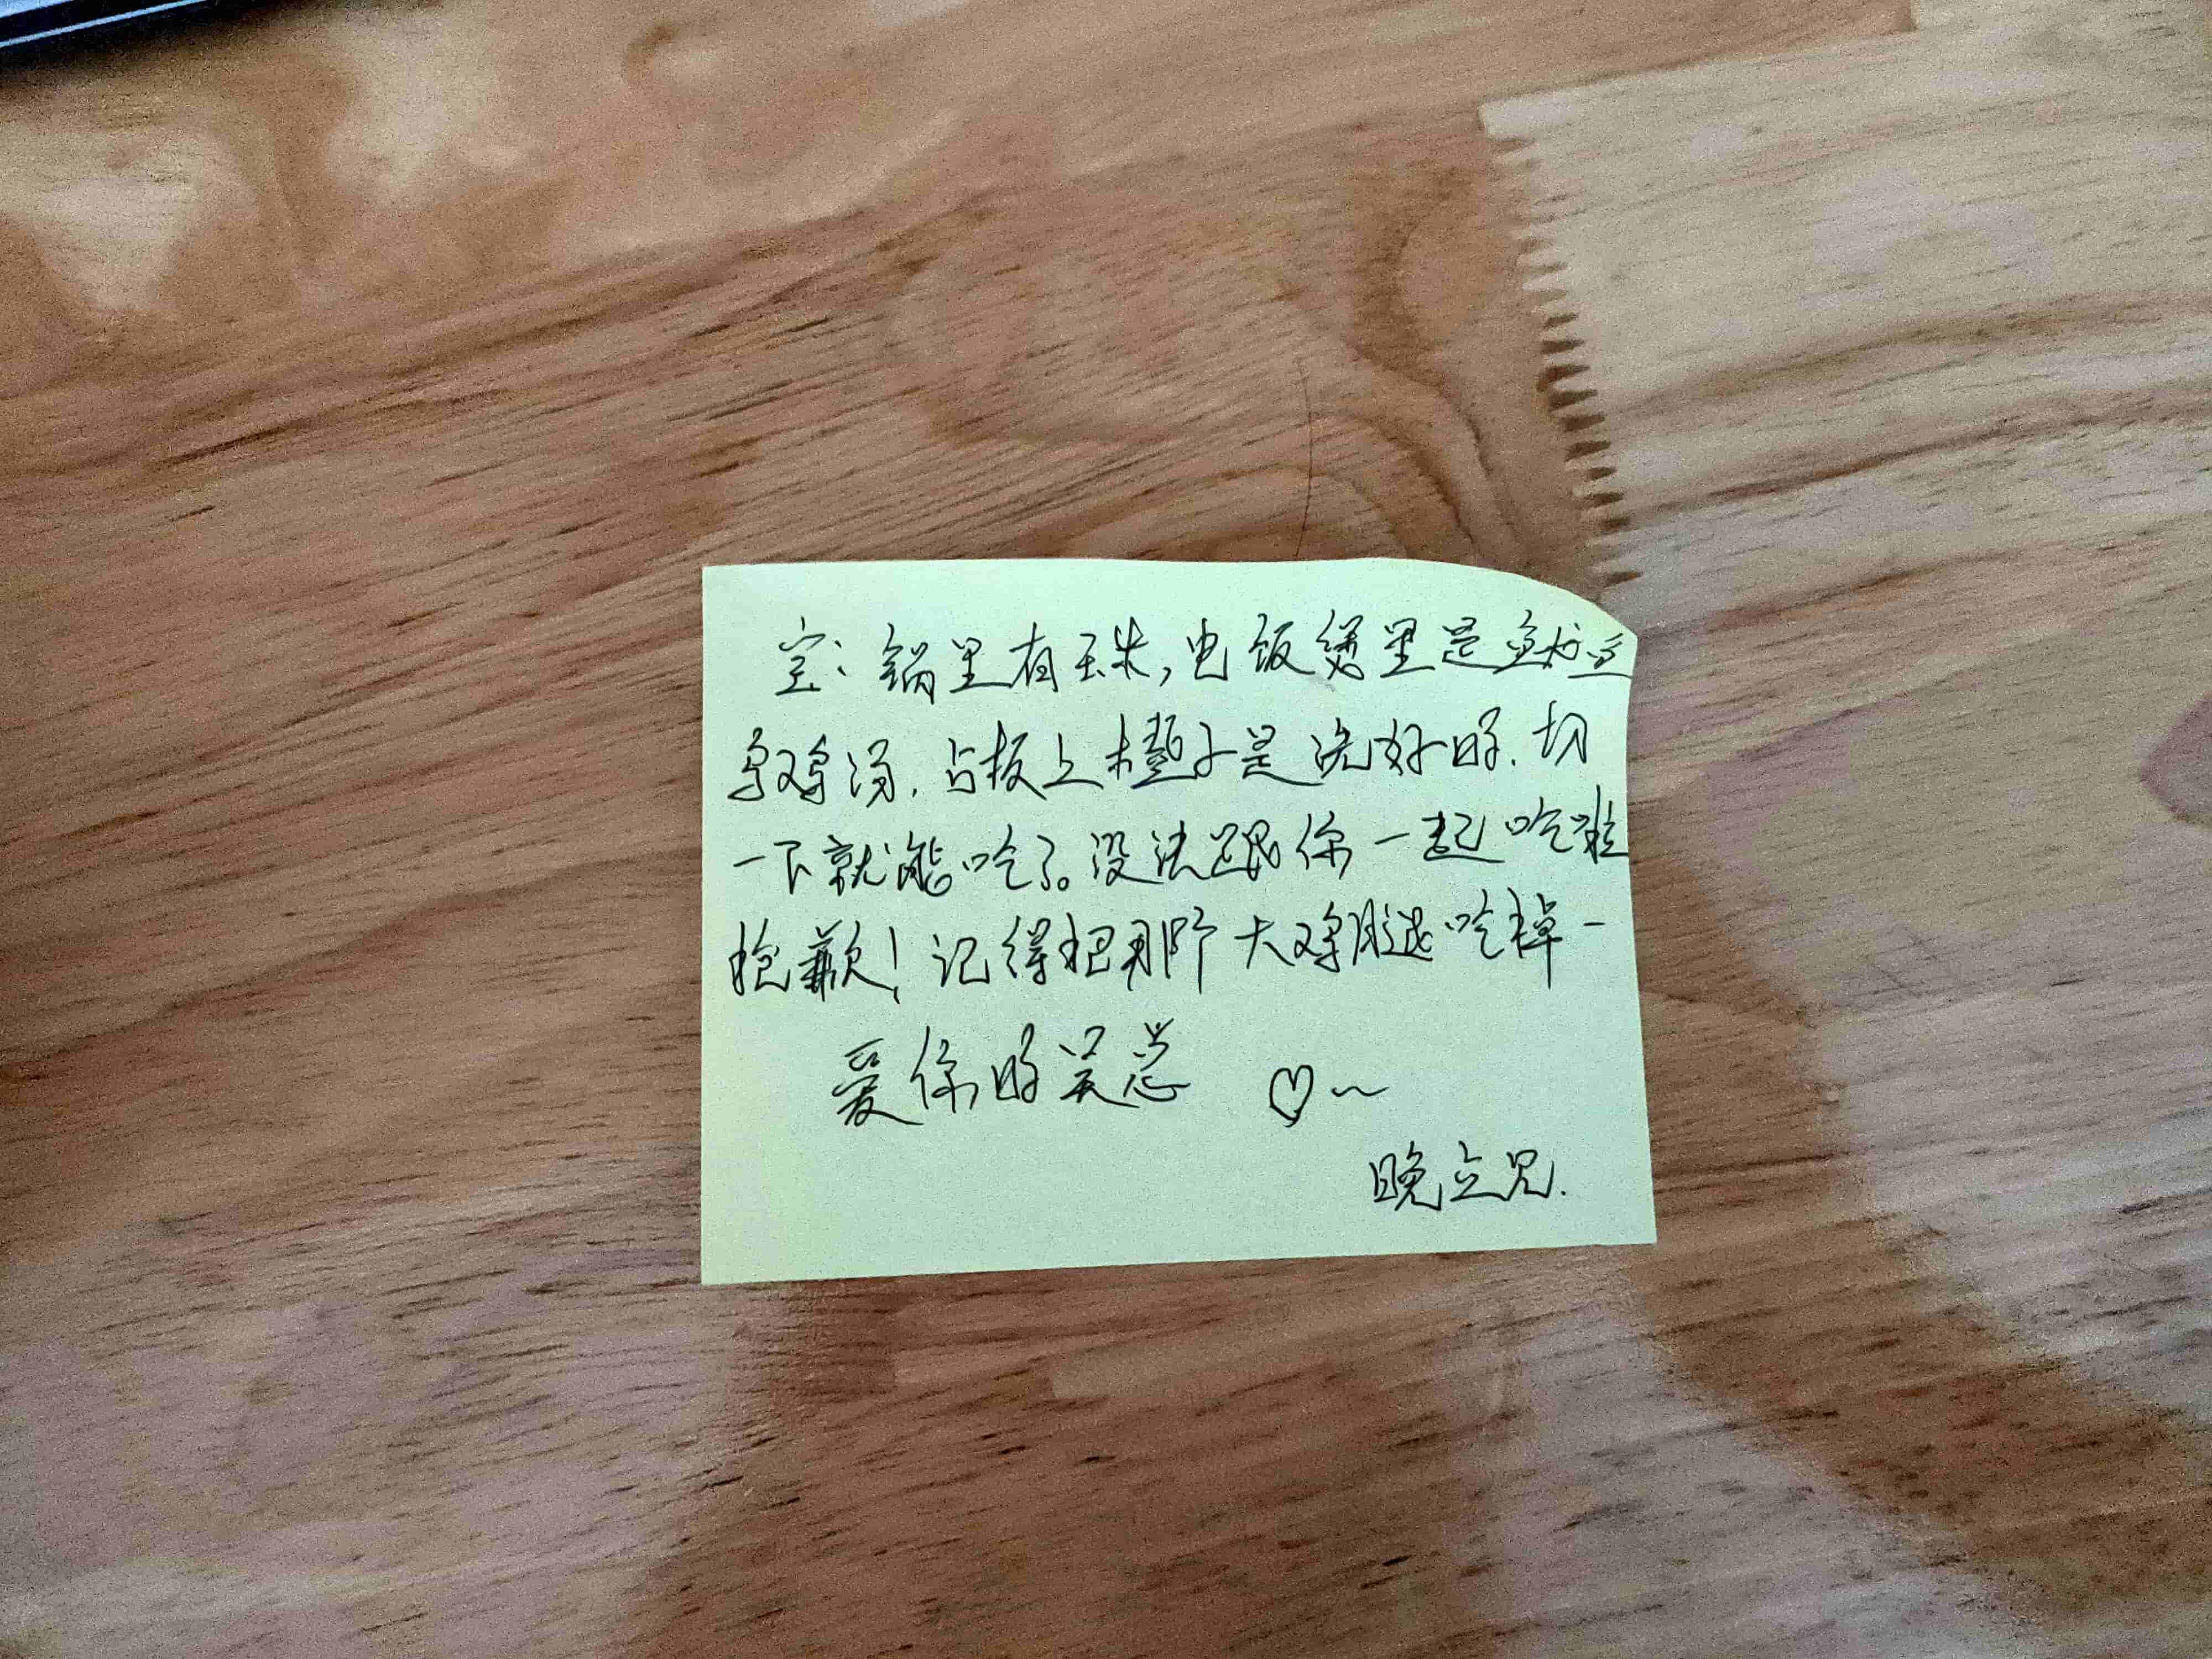 宝：锅里有玉米，电饭煲里是
乌鸡汤，占板上橙子是洗好的，切
一下就能吃了。没法跟你一起吃啦
抱歉！记得把那个大鸡腿吃掉~
爱你的吴总 ♡~
晚立见.